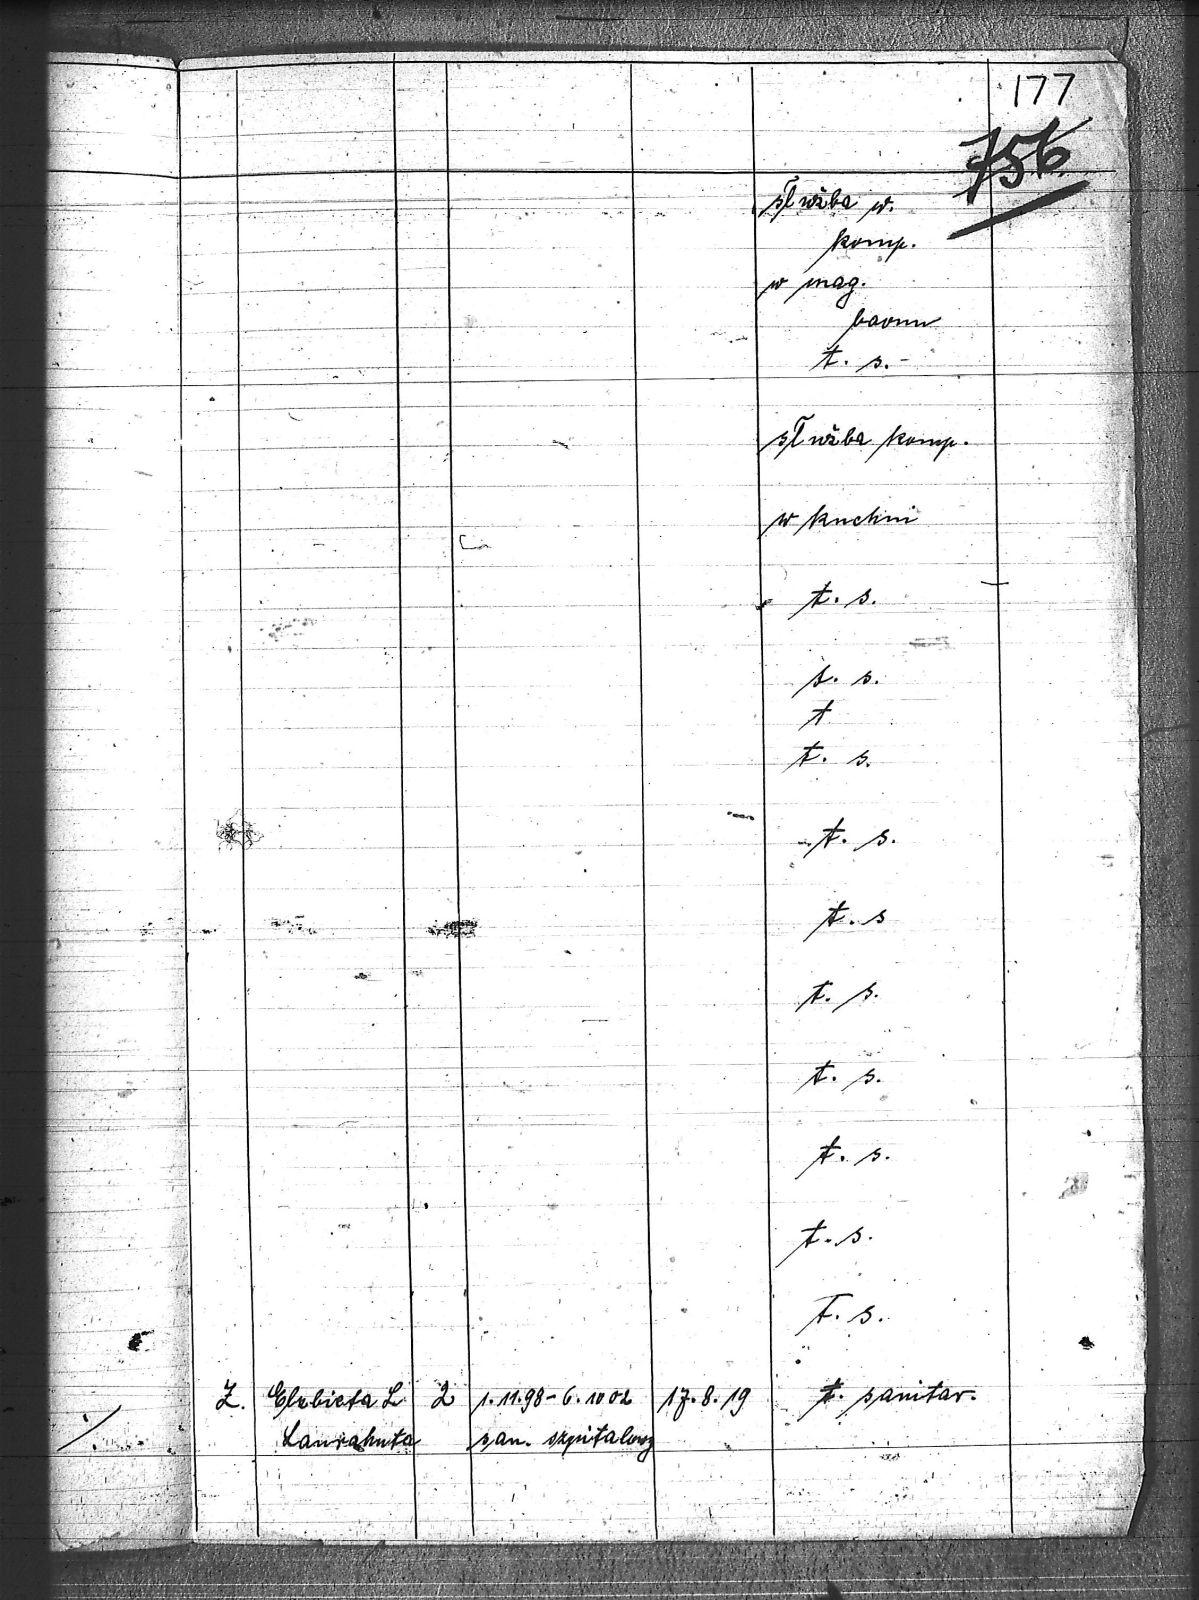 177
756.
służba w.
komp.
w mag.
baonu
t. s. -
służba komp.
w kuchni
t. s.
t. s.
t
t. s.
t. s.
t. s
t. s.
t. s.
t. s.
t. s.
T. s.
Ż. Elzbieta L 2 1.11.98 - 6.10 02 17.8.19 t. sanitar.
Laurahuta san. szpitalowy